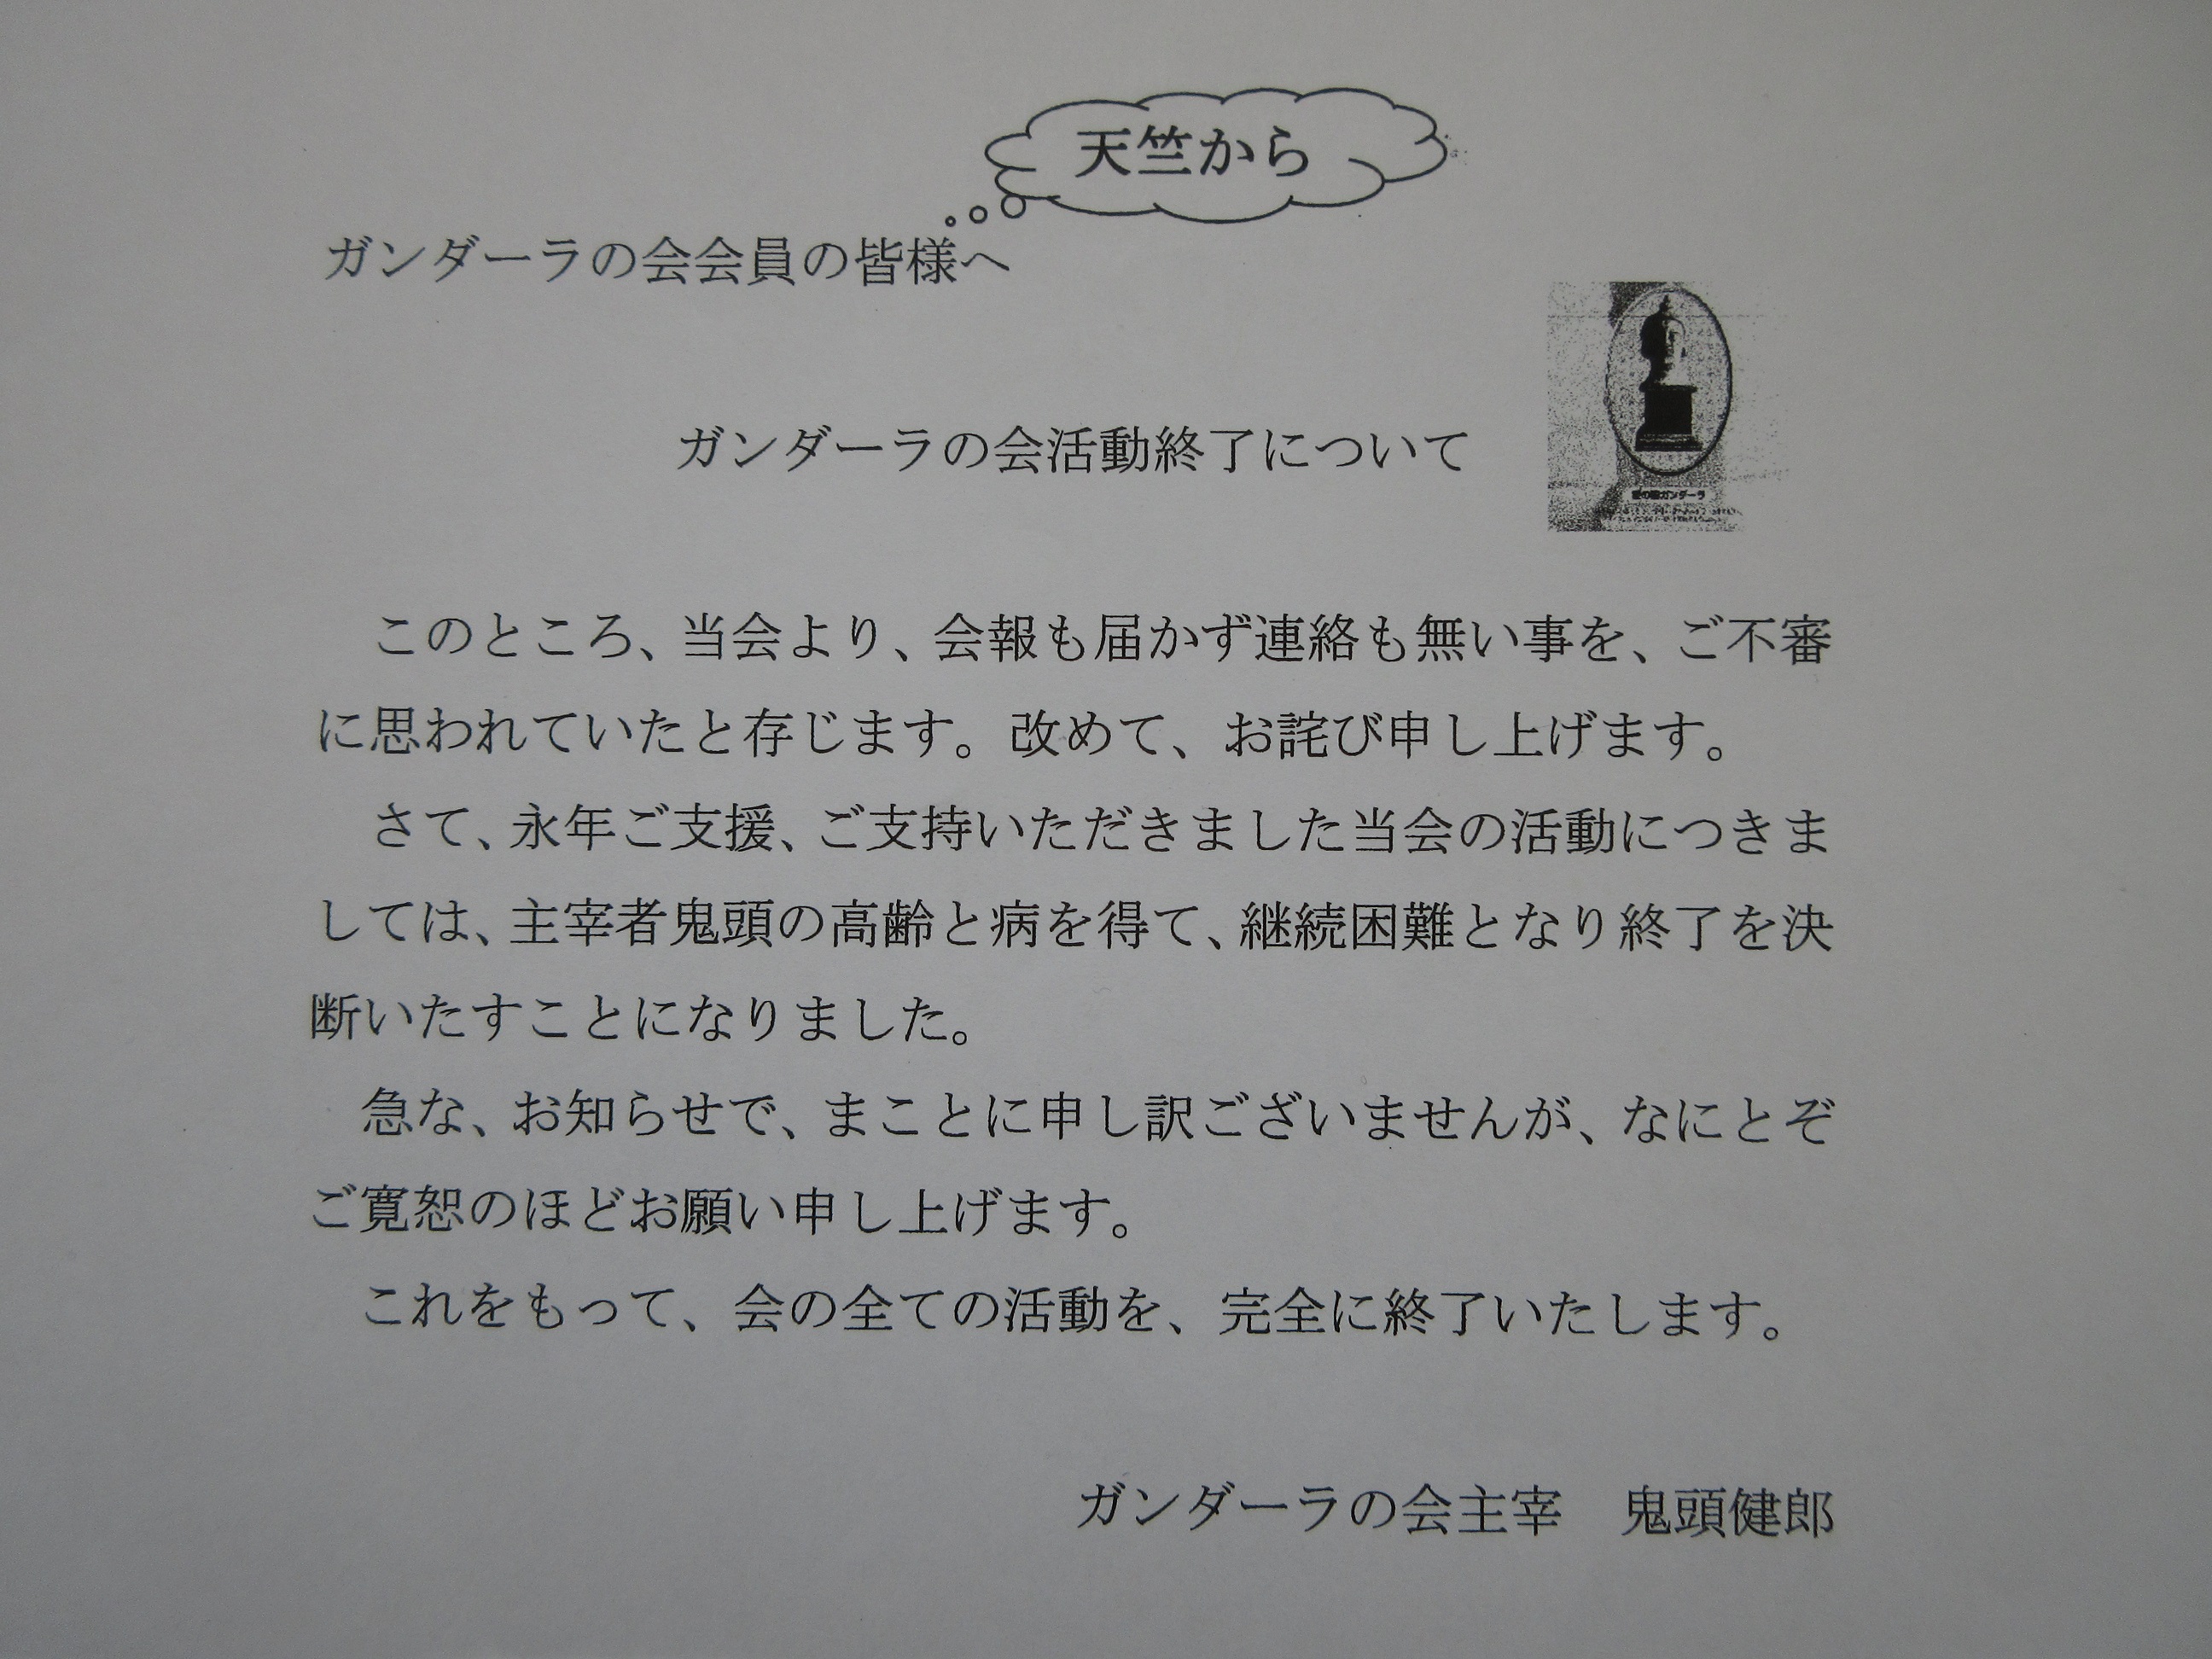 天竺から
ガンダーラの会会員の皆様へ
ガンダーラの会活動終了について
このところ、当会より、会報も届かず連絡も無い事を、ご不審
に思われていたと存じます。改めて、お詫び申し上げます。
さて、永年ご支援、ご支持いただきました当会の活動につきま
しては、主宰者鬼頭の高齢と病を得て、継続困難となり終了を決
断いたすことになりました。
急な、お知らせで、まことに申し訳ございませんが、なにとぞ
ご寛恕のほどお願い申し上げます。
これをもって、会の全ての活動を、完全に終了いたします。
ガンダーラの会主宰　鬼頭健郎